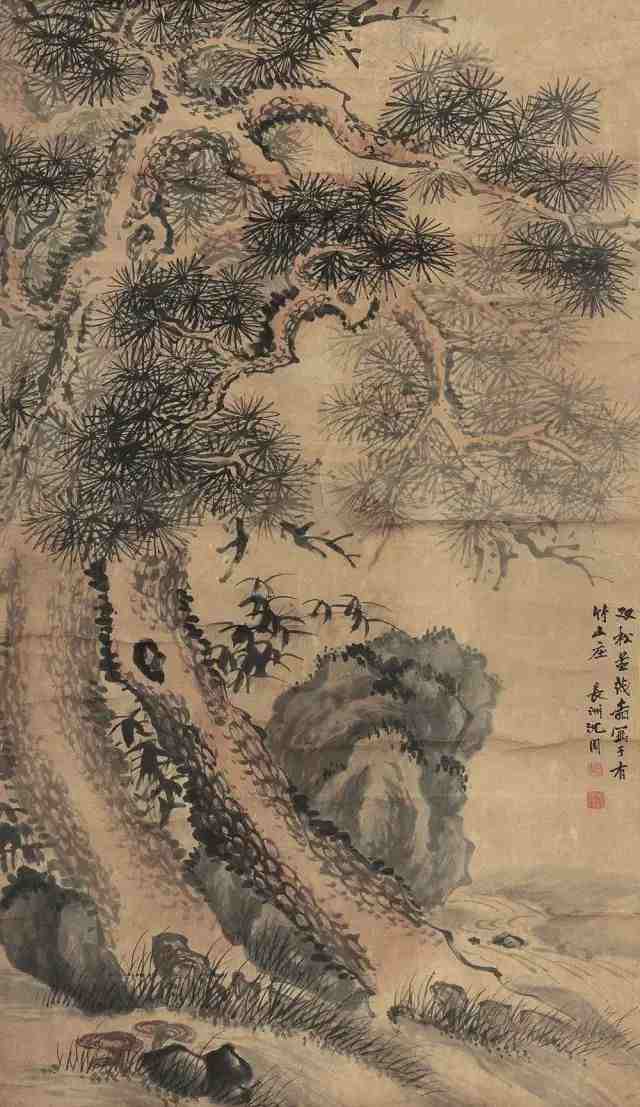 双松並茂啚寫于有
竹山庄 長洲沈周